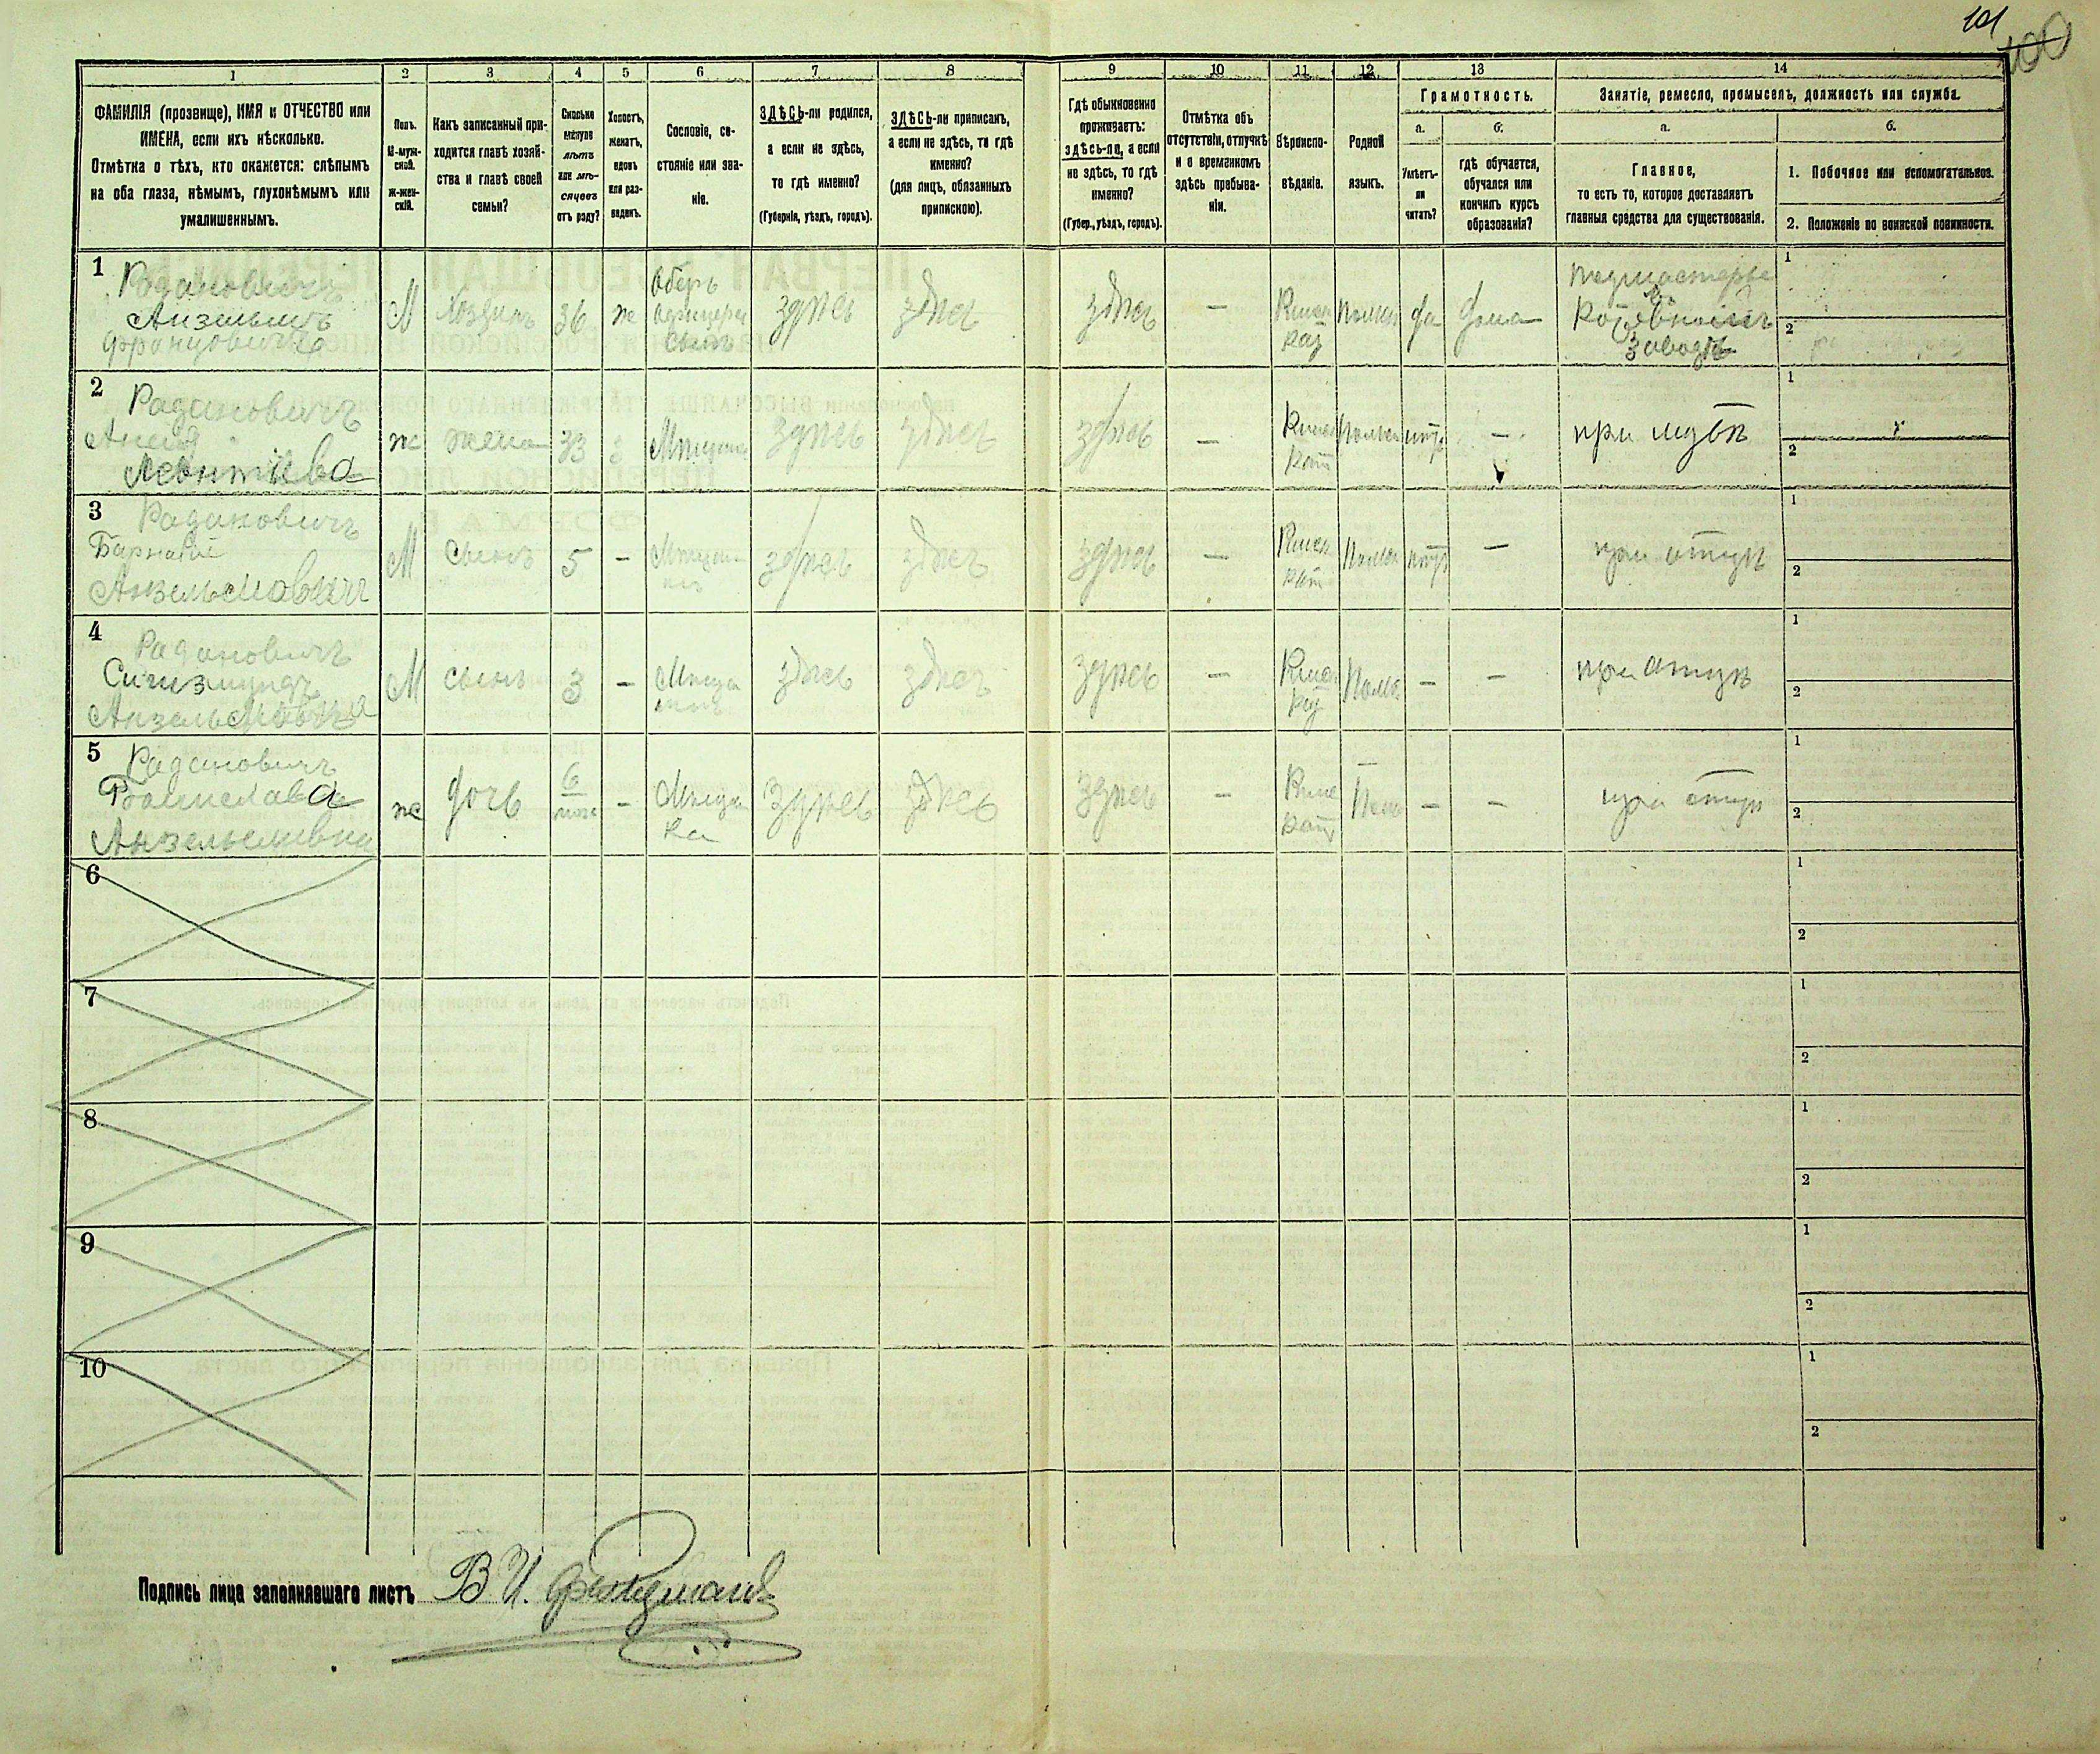 101
100
1
2
3
4
5
6
7
8
9
10
11
12
13
14
ФАМИЛІЯ (прозвище), ИМЯ и ОТЧЕСТВО или
ИМЕНА, если ихъ нѣсколько.
Отмѣтка о тѣхъ, кто окажется: слѣпымъ
на оба глаза, нѣмымъ, глухонѣмымъ или
умалишеннымъ.
Полъ.
М-муж-
ской.
Ж-жен-
скій.
Какъ записанный при-
ходится главѣ хозяй-
ства и главѣ своей
семьи?
Сколько
минуло
лѣтъ
или мѣ-
сяцевъ
отъ роду?
Холостъ,
женатъ,
вдовъ
или раз-
веденъ.
Сословіе, со-
стояніе или зва-
ніе.
ЗДѢСЬ-ли родился,
а если не здѣсь,
то гдѣ именно?
(Губернія, уѣздъ, городъ).
ЗДѢСЬ-ли приписанъ,
а если не здѣсь, то гдѣ
именно?
(для лицъ, обязанныхъ
припискою).
Гдѣ обыкновенно
проживаетъ:
здѣсь-ли, а если
не здѣсь, то гдѣ
именно?
(Губер., уѣздъ, городъ).
Отмѣтка объ
отсутствіи, отлучкѣ
и о временномъ
здѣсь пребыва-
ніи.
Вѣроиспо-
вѣданіе.
Родной
языкъ.
Грамотность.
а.
Умѣетъ-
ли
читать?
б.
гдѣ обучается,
обучался или
кончилъ курсъ
образованія?
Занятіе, ремесло, промыселъ, должность или служба.
а.
Главное,
то есть то, которое доставляетъ
главныя средства для существованія.
б.
1. Побочное или вспомогательное.
2. Положеніе по воинской повинности.
1
Радановичъ
Анзельмъ
Францовичъ
М
хозяинъ
36
ж
Оберъ
офицера
сынъ
здѣсь
здѣсь
здѣсь
—
да
дома
заводѣ
1
2
2
Радановичъ
Леонтіева
ж
жена
33
здѣсь
здѣсь
здѣсь
—
—
при мужѣ
1
2
3
Радановичъ
Анзельмовичъ
М
сынъ
5
—
здѣсь
здѣсь
здѣсь
—
—
при отцѣ
1
2
4
Радановичъ
Сигизмундъ
М
сынъ
3
—
здѣсь
здѣсь
здѣсь
—
—
—
при отцѣ
1
2
5
Радановичъ
Анзельмовна
ж
дочь
6
—
здѣсь
здѣсь
здѣсь
—
—
—
при отцѣ
1
2
6
1
2
7
1
2
8
1
2
9
1
2
10
1
2
Подпись лица заполнявшаго листъ В. И.